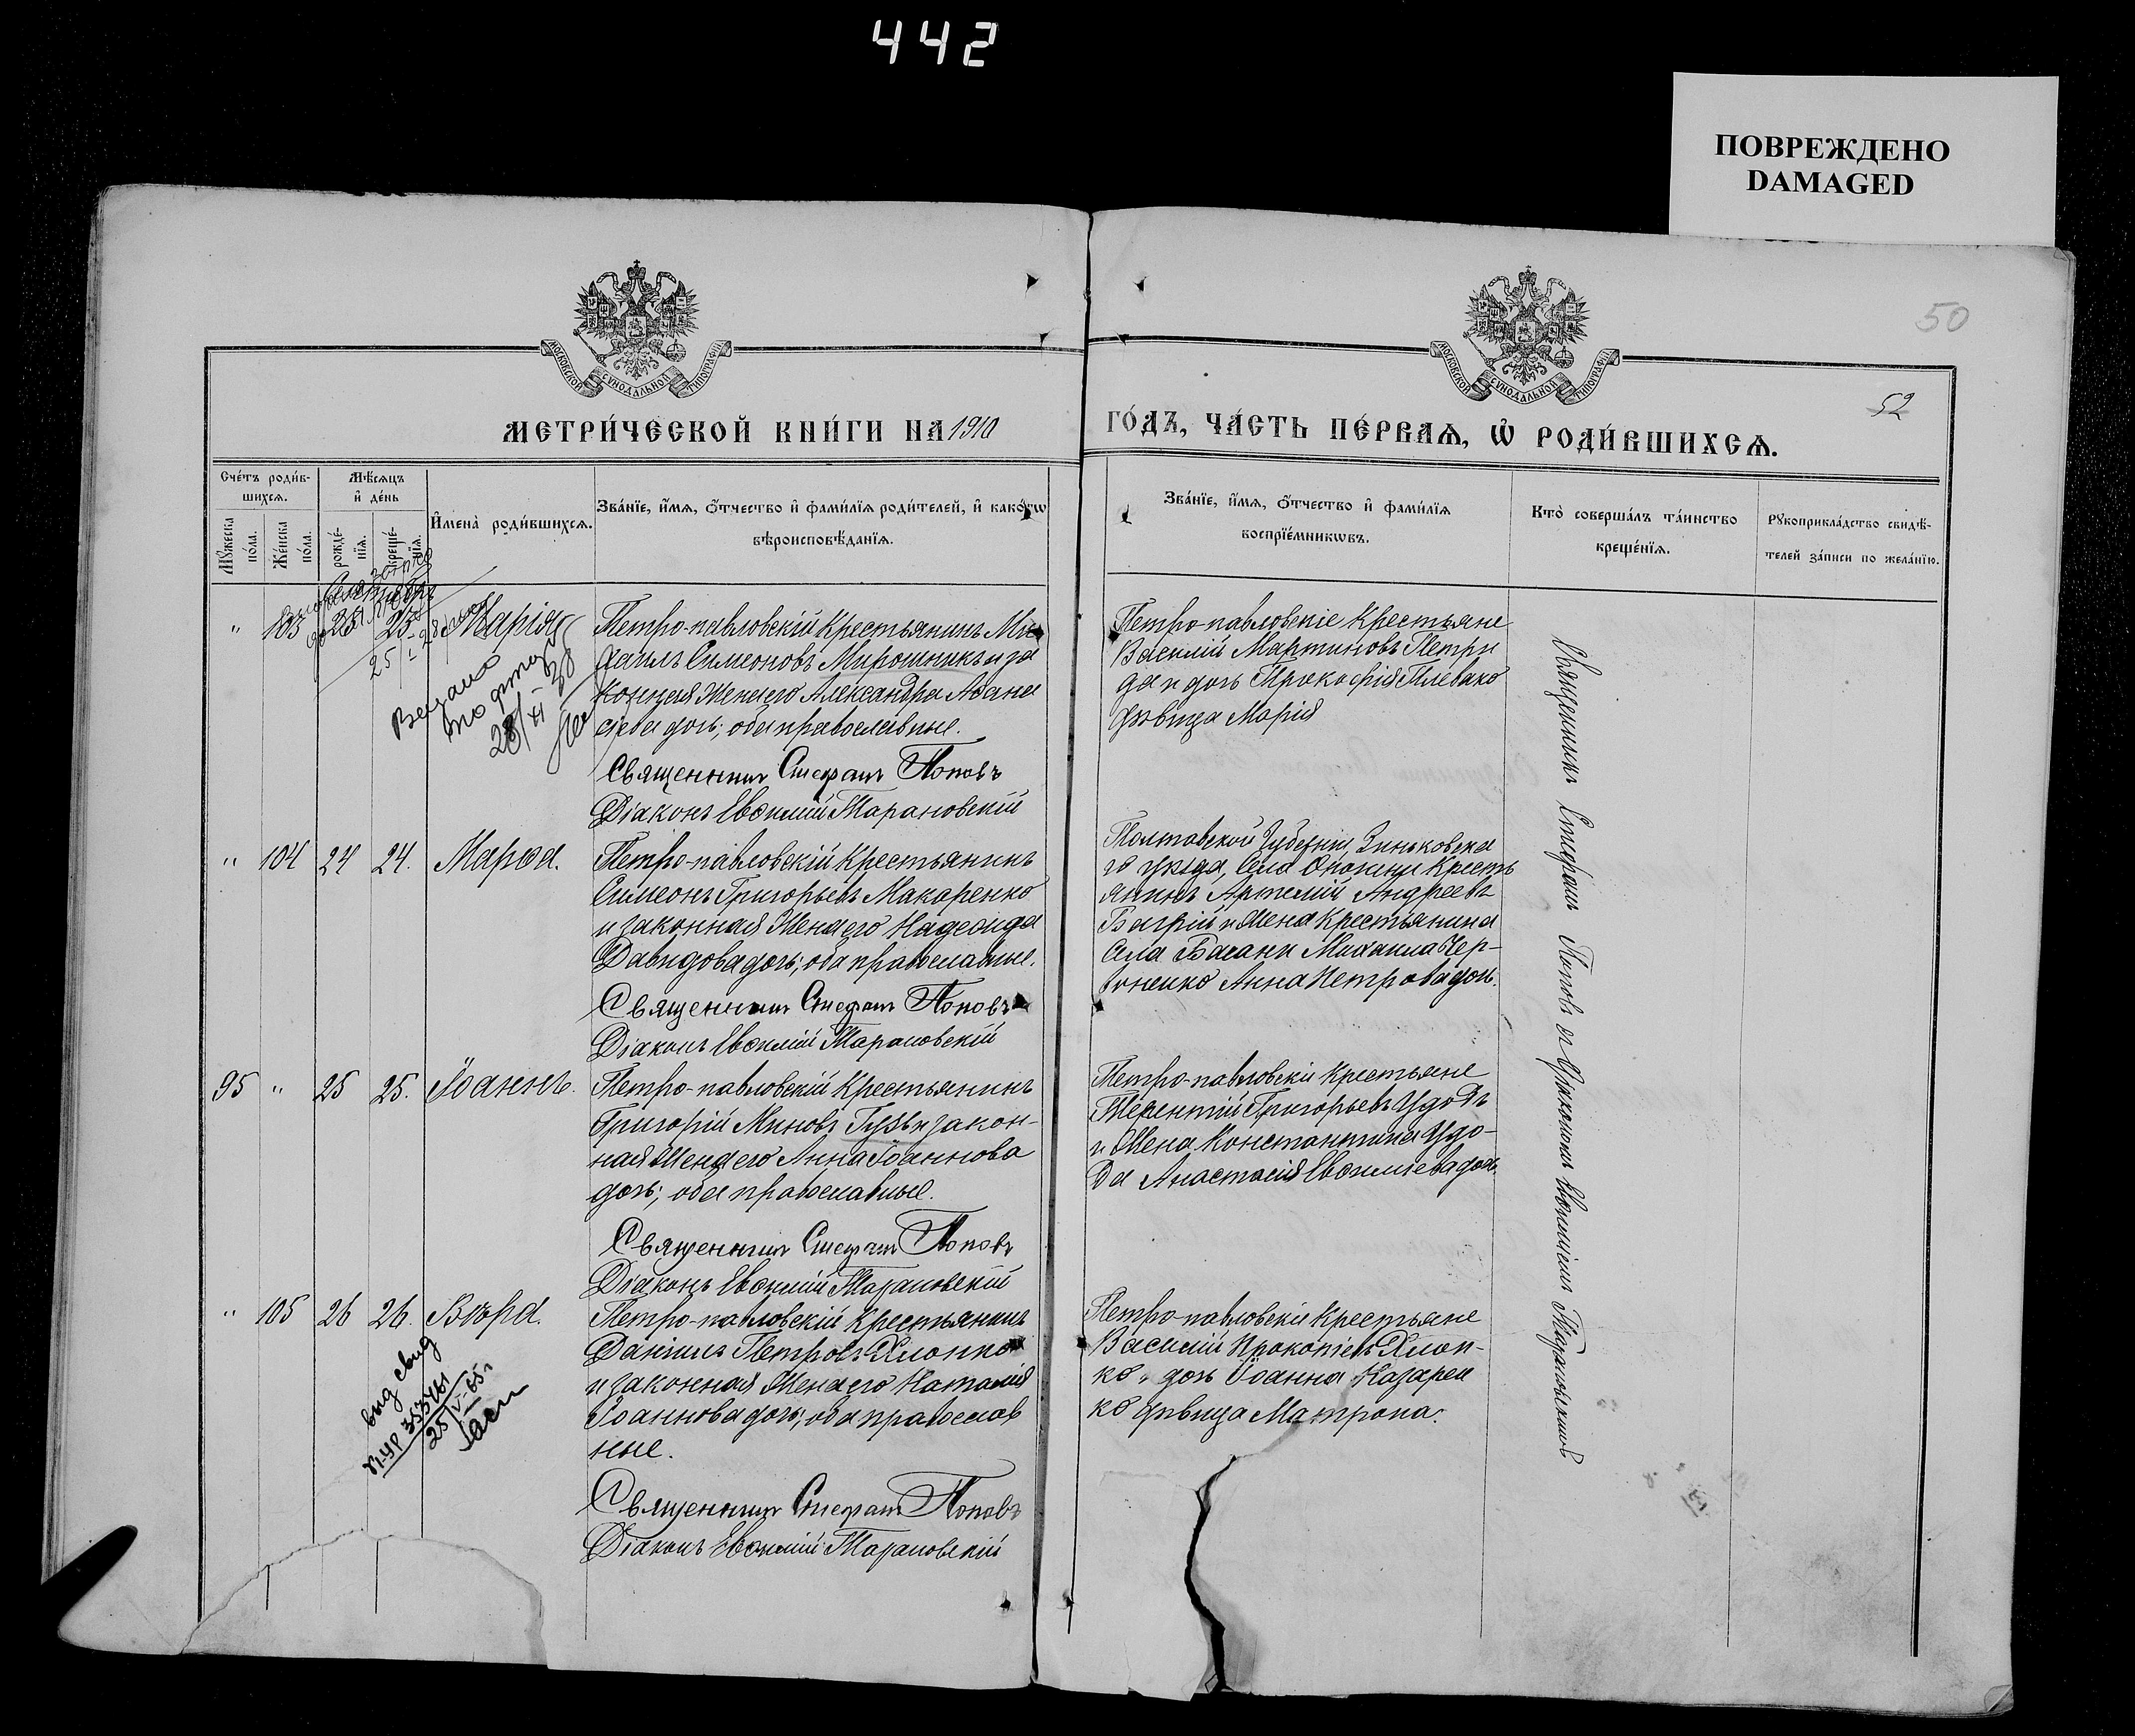 442
ПОВРЕЖДЕНО
DAMAGED
50
52
МОСКОВСКОЙ СѴНОДАЛЬНОЙ ТИПОГРАФІИ
МОСКОВСКОЙ СѴНОДАЛЬНОЙ ТИПОГРАФІИ
МЕТРИ́ЧЕСКОЙ КНИ́ГИ НА 1910
ГО́ДЪ, ЧА́СТЬ ПЕ́РВАѦ, Ѡ҆ РОДИ́ВШИХСѦ.
Сче́тъ роди́в-
шихсѧ.
Мѣ́сѧцъ
и҆ де́нь
Мꙋ́жеска
по́ла.
Же́нска
по́ла.
рожде́-
нїѧ.
креще́-
нїѧ.
И҆мена̀ роди́вшихсѧ.
Зва́нїе, и҆́мѧ, ѻ҆́тчество и҆ фами́лїѧ роди́телей, и҆ како́гѡ
вѣроисповѣ́данїѧ.
Зва́нїе, и҆́мѧ, ѻ҆́тчество и҆ фами́лїѧ
воспрїе́мникѡвъ.
Кто̀ соверша́лъ та́инство
креще́нїѧ.
Рꙋкоприкла́дство свидѣ́-
телей за́писи по жела́нїю.
" 103 23 23 Марія
Петро-павловскій Крестьянинъ Ми-
хаилъ Симеоновъ Мирошникъ и за
конная Жена его Александра Аѳана
сіева дочь; оба православные.
Священникъ Стефанъ Поповъ
Діаконъ Евѳимій Тарановскій
Петро-павловскіе Крестьяне
Василій Мартиновъ Петри
да и дочь Прокофія Плевако
дѣвица Марія
Выдано
28/XI 38
" 104 24 24. Марѳа.
Петро-павловскій Крестьянинъ
Симеонъ Григорьевъ Макаренко
и законная Жена его Надежда
Давидова дочь; оба православные.
Священникъ Стефанъ Поповъ
Діаконъ Евѳимій Тарановскій
Полтавской Губерніи, Зиньковска
го уѣзда, Села Опошни Кресть
янинъ Артемій Андреевъ
Багрій и Жена Крестьянина
Села Бачани Михаила Чер-
воненко Анна Петрова дочь.
95 " 25 25. Іоаннъ.
Петро-павловскій Крестьянинъ
Григорій Миновъ Гузь и закон-
ная Жена его Анна Іоаннова
дочь; оба православные.
Священникъ Стефанъ Поповъ
Діаконъ Евѳимій Тарановскій
Петро-павловскіе Крестьяне
Терентій Григорьевъ Удодъ
и Жена Константина Удо-
да Анастасія Евѳиміева дочь.
" 105 26 26. Вѣра.
Петро-павловскій Крестьянинъ
Даніилъ Петровъ Хлопко
и законная Жена его Наталія
Іоаннова дочь; оба православ
ные.
Священникъ Стефанъ Поповъ
Діаконъ Евѳимій Тарановскій
Петро-павловскіе Крестьяне
Василій Прокопіевъ Хлоп-
ко и дочь Іоанна Назарен
ко дѣвица Матрона.
выд свид
353761
25/V-65г
Священникъ Стефанъ Поповъ съ Діакономъ Евѳиміемъ Тарановскимъ